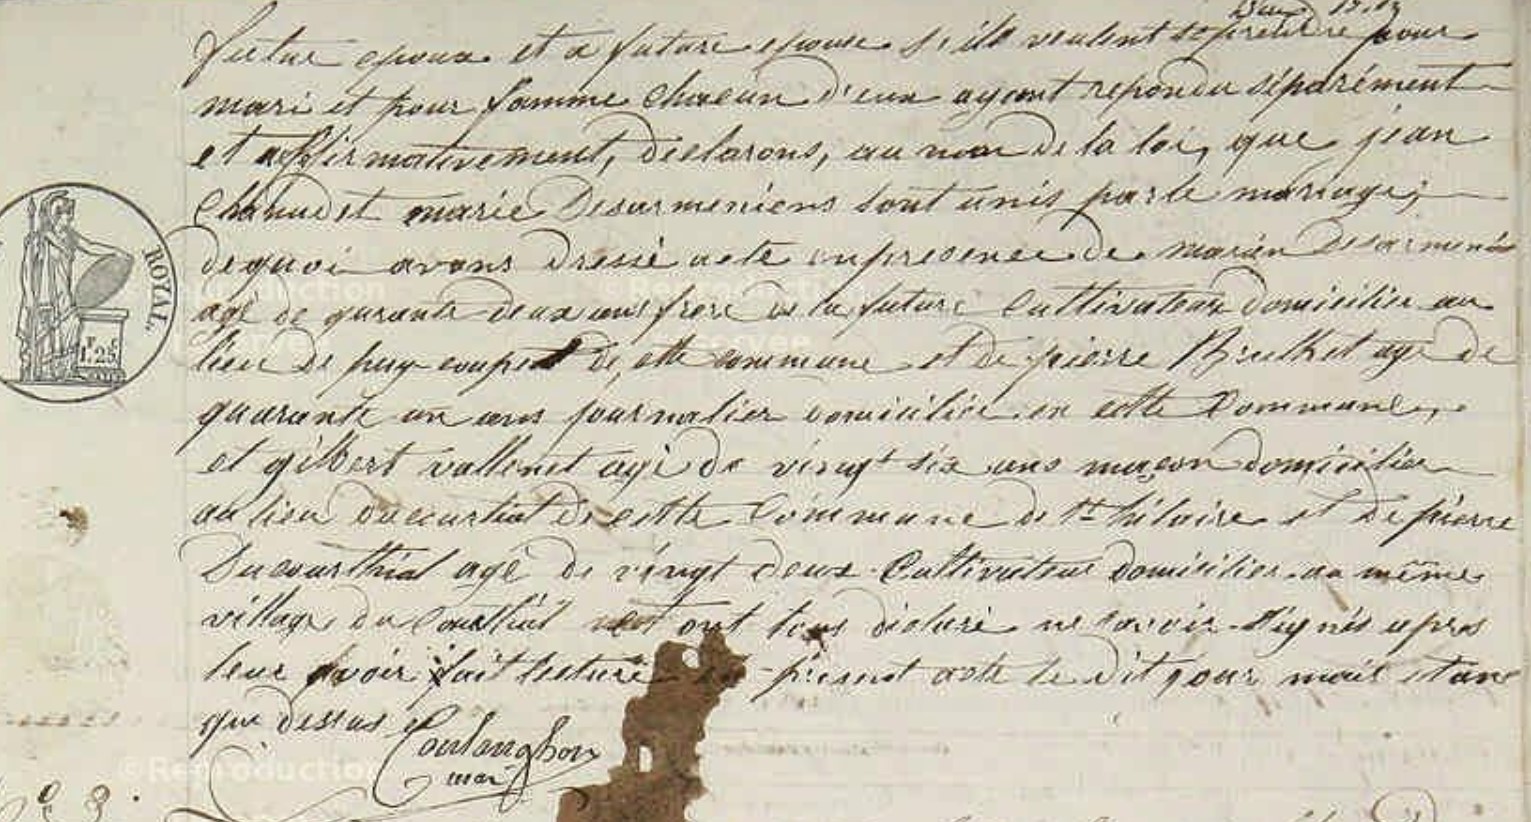 futur epoux et a future epouse s'ils veulent se prendre pour
mari et pour famme chacun d'eux ayant repondu séparément
et affirmativement, déclarons, au nom de la loi, que jean
et marie Desarmeniens sont unis par le mariage;
de quoi avons dressé acte en presence de marien Desarmenien
agé de quarante deux ans frere de la future cultivateur domicilier au
lieu de puy de cette commune et de pierre Brulhet agé de
quarante un ans journalier domicilier en cette commune,
et gilbert vallenet agé de vingt six ans maçon domicilier
au lieu du courtial de cette commune de St hilaire et de pierre
Ducourthial agé de vingt deux cultivateur domicilier au même
village du Courthial ont tous déclaré ne savoir signés apres
leur avoir fait lecture présent acte le dit jour mois et an
que dessus
Coulanghon
ROYAL.
1.F 25.C
©Reproduction